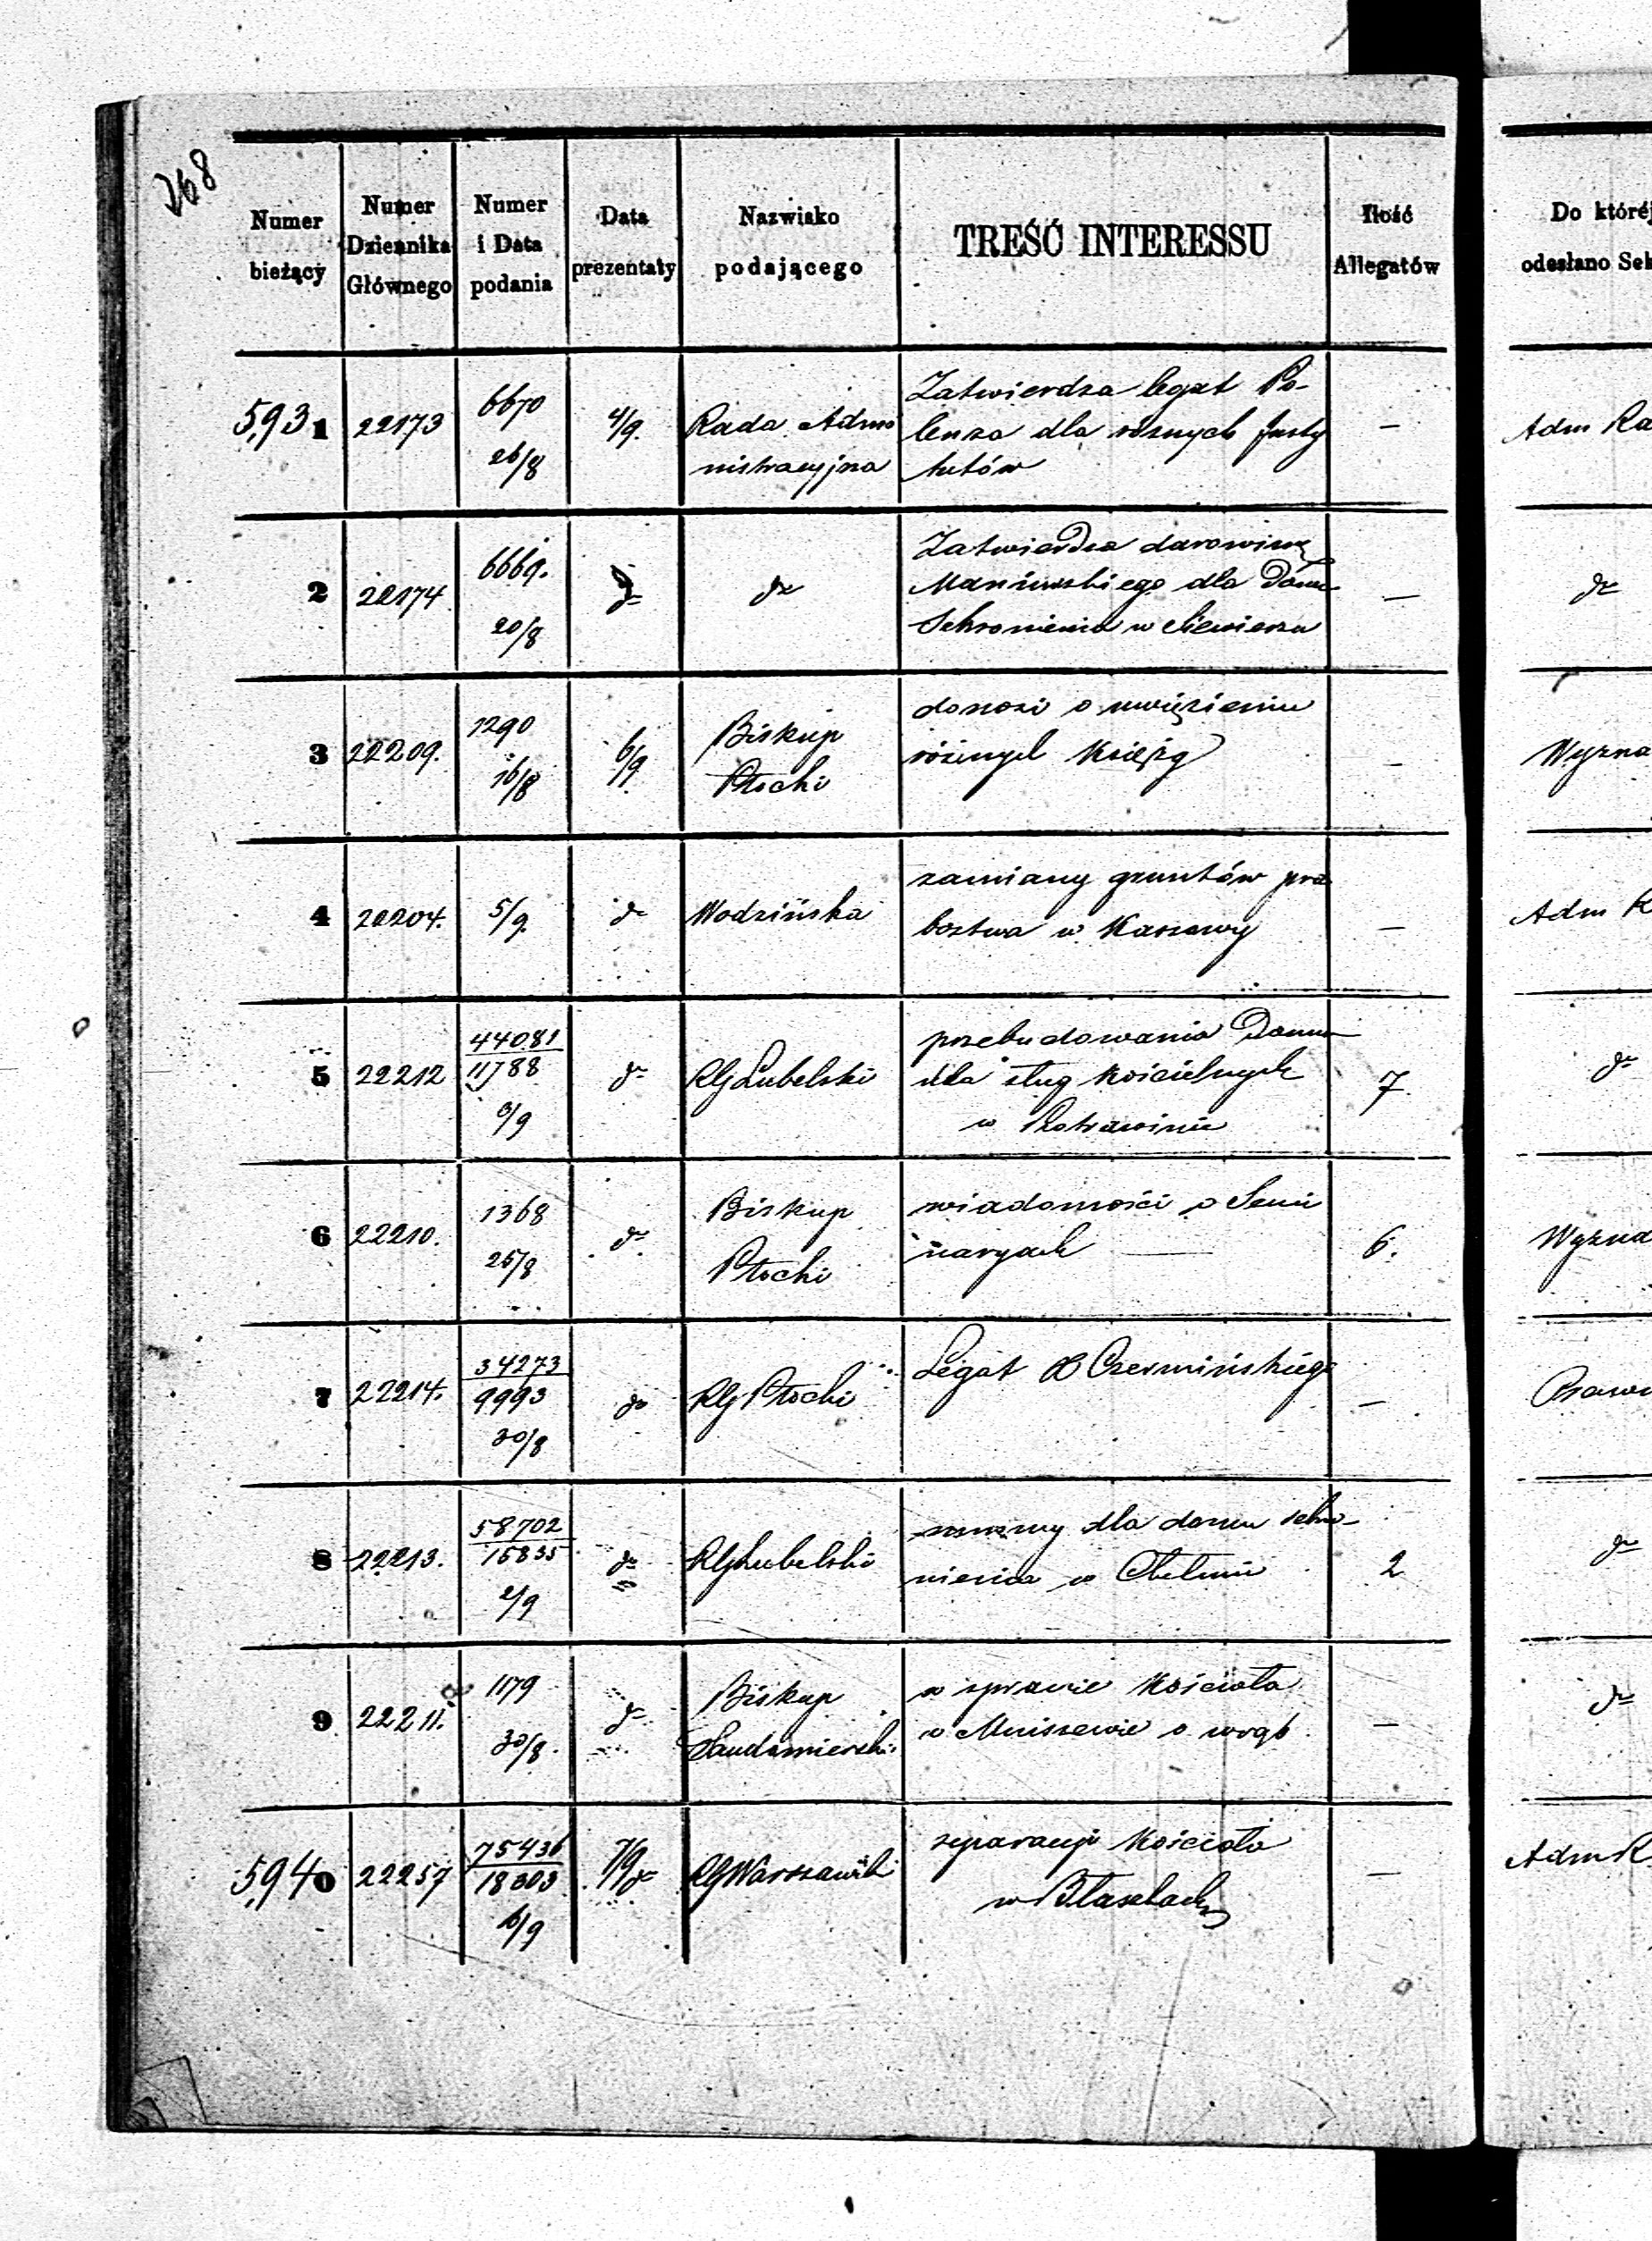 268
Numer bieżący
Numer Dziennika Głównego
Numer i Data podania
Data prezentaty
Nazwisko podającego
TREŚĆ INTERESSU
Ilość Allegatów
Do któréj
odesłano Sek
5,931 22173 6670 26/8 4/9. Rada Admi
nistracyjna
Zatwierdza legat Po-
lenza dla różnych Insty
tutów
—
Adm Ra
2 22174 6669. 20/8 do do
Zatwierdza darowiznę
dla Domu
Schronienia w Siewierzu
—
do
3 22209. 1290 16/8 6/9 Biskup
Płocki
donosi o uwięzieniu
różnych Księży
—
Wyzna
4 22204. 5/9. do Wodzińska
zamiany gruntów pro
bostwa w
—
Adm
5 22212 44081
11788
3/9 do RG Lubelski
przebudowania Domu
dla sług kościelnych
w Piotrawinie
7.
do
6 22210. 1368 25/8 do Biskup
Płocki
wiadomości o Semi
naryach
6.
Wyzna
7 22214. 34273
9993
30/8 do RG Płocki
Legat X Czermińskiego
—
Prawn
8 22213. 58702
15835
2/9 do RG Lubelski
summy dla domu schro-
nienia w Chełmie
2
do
9 22211. 1179 30/8. do Biskup
Sandomierski
w sprawie Kościoła
w Mniszewie o wrąb
—
do
5,940 22257 75436
18303
6/9 7/9 do RG Warszawski
reparacyi Kościoła
w Błaszkach
—
Adm R